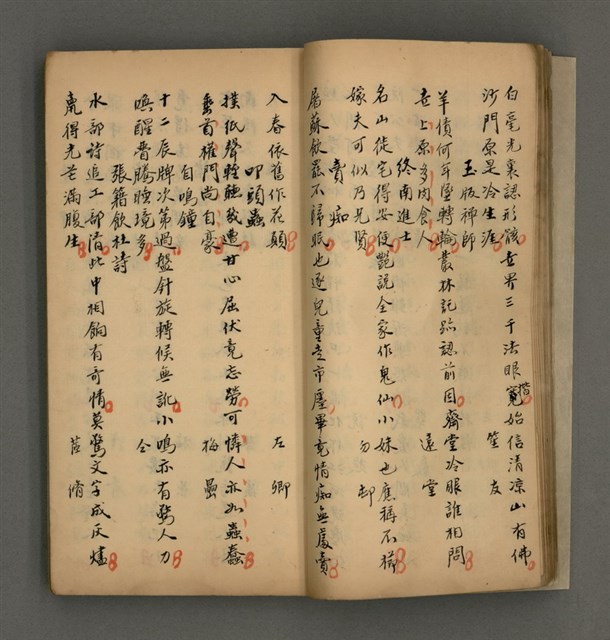 白毫光裏認形骸世界三千法眼寬揩始信清涼山有佛
沙門原是冷生涯　笙友
玉版禪師
羊債何年墜轉輪叢林託跡認前因齋堂冷眼誰相問
世上原多肉食人　蓬堂
終南進士
名山徙宅得安便艷說全家作鬼仙小妹也應稱不櫛
嫁夫可似乃兄賢　勿却
賣痴
屠蘇飲罷不歸眠也逐兒童走市廛畢竟情痴無處賣
入春依舊作花顛　左卿
叩頭蟲
撲紙聲輕聽幾遭甘心屈伏竟忘勞可憐人亦如蟲蠢
當首權門尚自豪　梅壘
自鳴鐘
十二辰牌次第過盤針旋轉候無訛小鳴亦有驚人力
喚醒瞢騰睡境多　仝
張籍飲杜詩
水部詩追工部清此中相餉有奇情莫驚文字成灰燼
贏得光芒滿腹生　茝脩